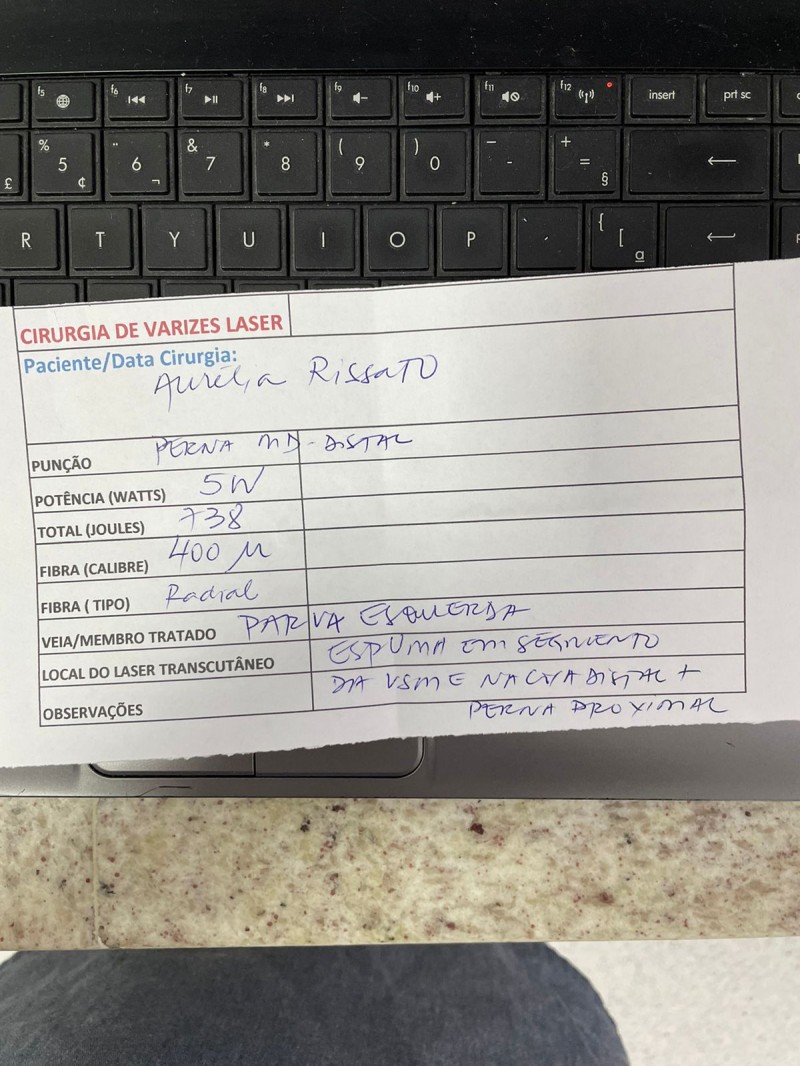 f5 f6 f7 f8 f9 f10 f11 f12 insert prt sc
£ % 5 ¢ " 6 ¬ & 7 * 8 ( 9 ) 0 - + = §
R T Y U I O P { [ a
CIRURGIA DE VARIZES LASER
Paciente/Data Cirurgia:
Aurélia Rissato
PUNÇÃO PERNA MD-DISTAL
POTÊNCIA (WATTS) 5W
TOTAL (JOULES) 738
FIBRA (CALIBRE) 400 M
FIBRA ( TIPO) Radial
VEIA/MEMBRO TRATADO PARVA ESQUERDA
LOCAL DO LASER TRANSCUTÂNEO ESPUMA EM SEGMENTO
DA VSM E NA COXA DISTAL +
OBSERVAÇÕES PERNA PROXIMAL